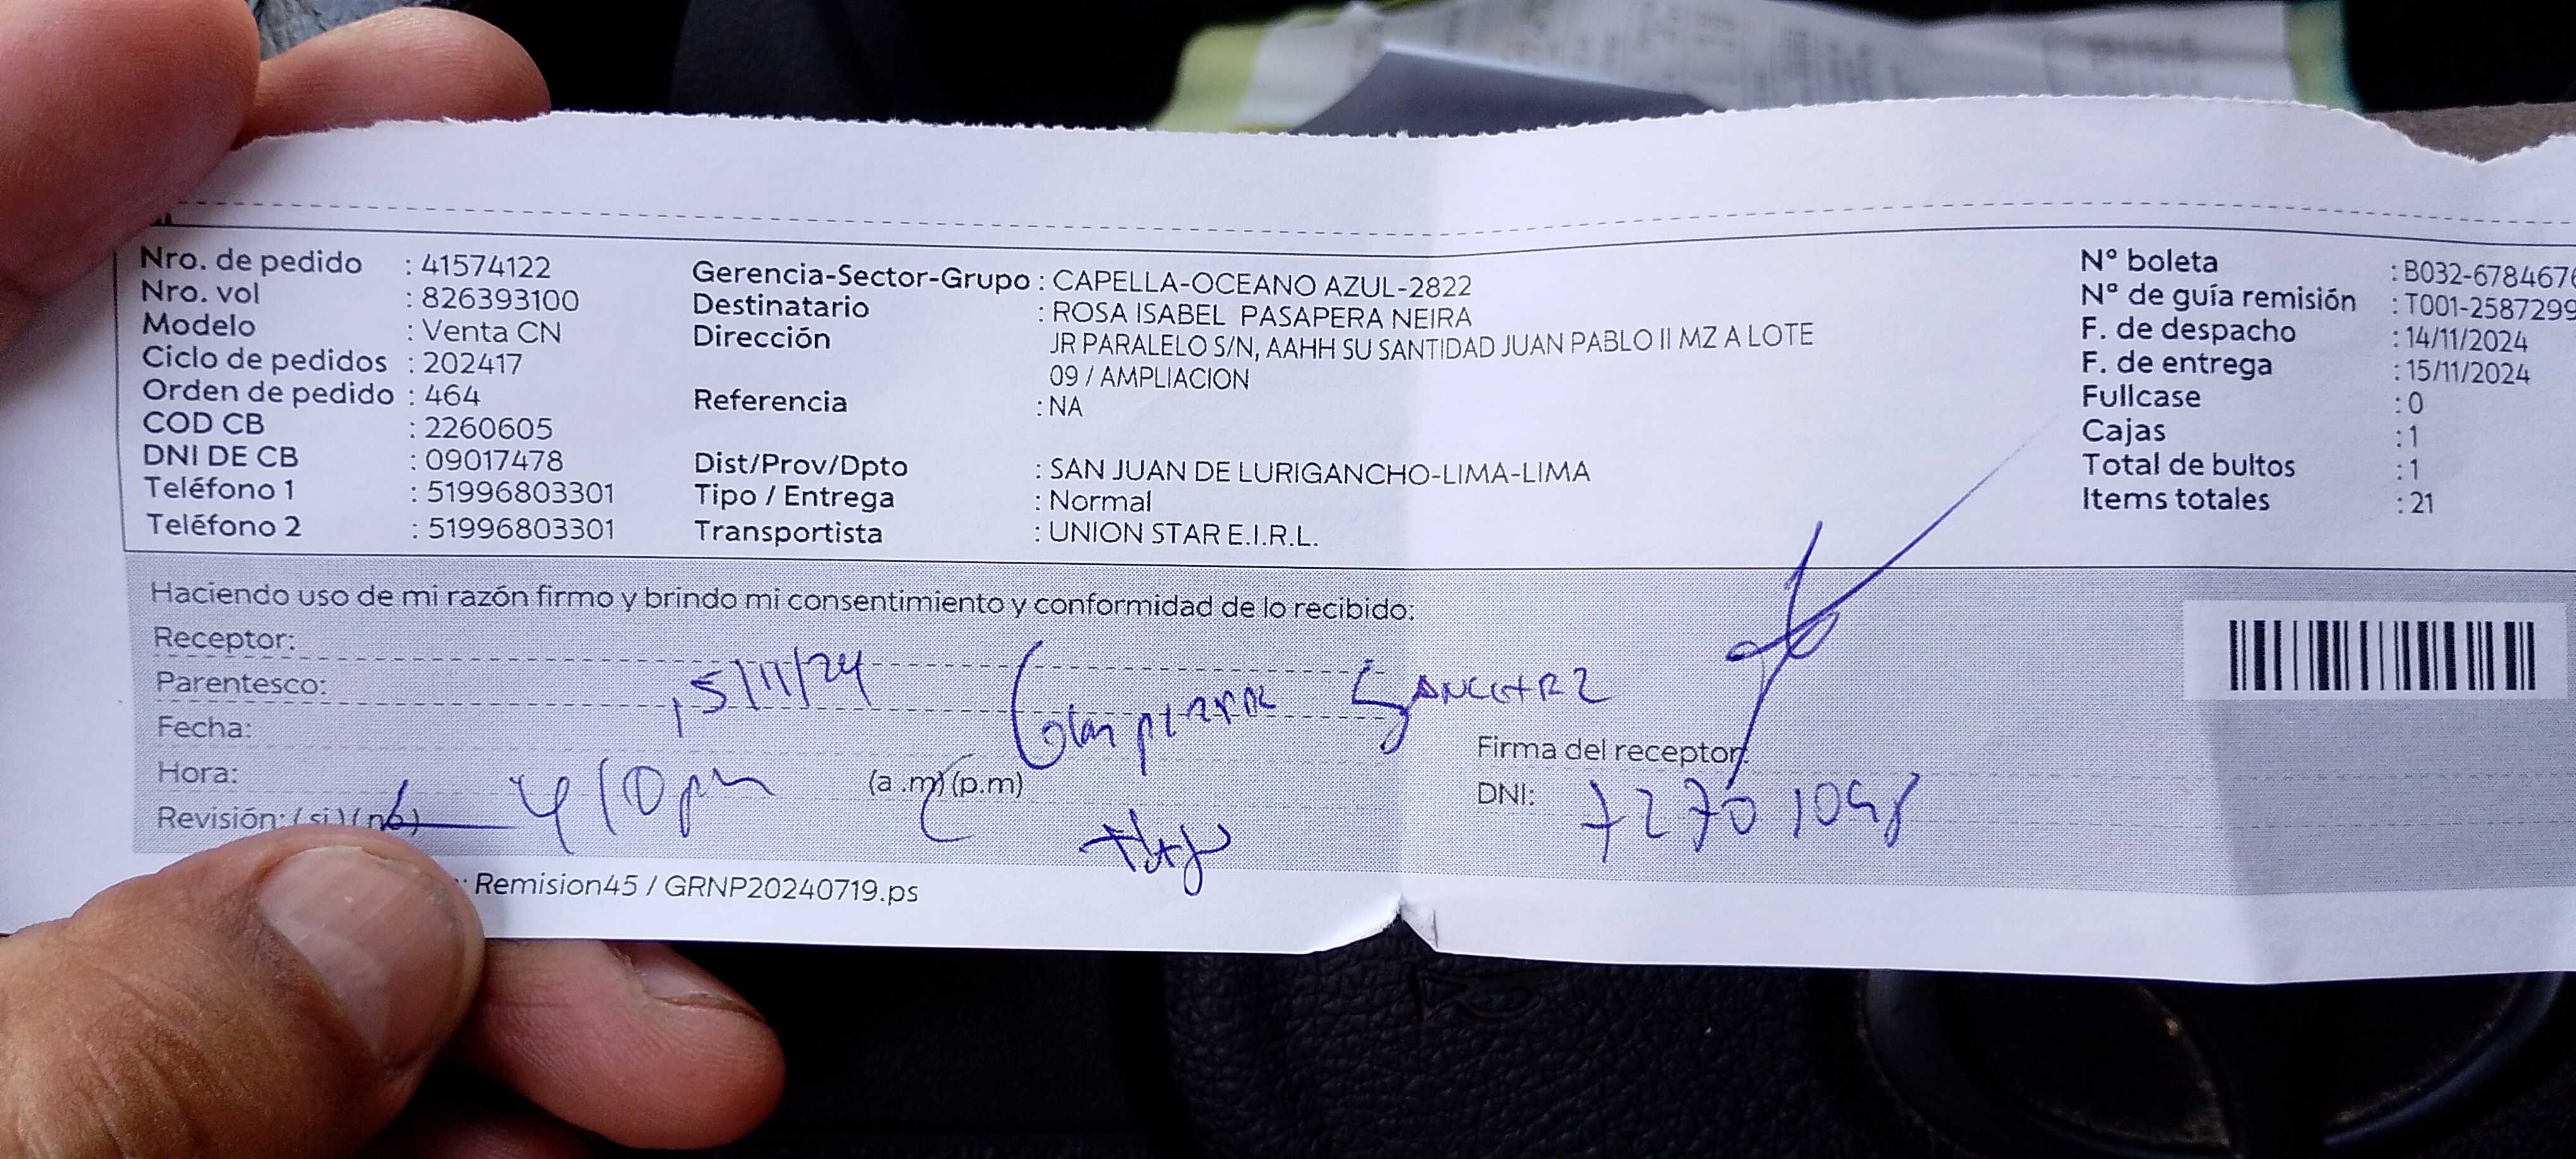 Nro. de pedido : 41574122
Nro. vol : 826393100
Modelo : Venta CN
Ciclo de pedidos : 202417
Orden de pedido : 464
COD CB : 2260605
DNI DE CB : 09017478
Teléfono 1 : 51996803301
Teléfono 2 : 51996803301
Gerencia-Sector-Grupo : CAPELLA-OCEANO AZUL-2822
Destinatario : ROSA ISABEL PASAPERA NEIRA
Dirección JR PARALELO S/N, AAHH SU SANTIDAD JUAN PABLO II MZ A LOTE
09 / AMPLIACION
Referencia : NA
Dist/Prov/Dpto : SAN JUAN DE LURIGANCHO-LIMA-LIMA
Tipo / Entrega : Normal
Transportista : UNION STAR E.I.R.L.
N° boleta : B032-678467
N° de guía remisión : T001-2587299
F. de despacho : 14/11/2024
F. de entrega : 15/11/2024
Fullcase : 0
Cajas : 1
Total de bultos : 1
Items totales : 21
Haciendo uso de mi razón firmo y brindo mi consentimiento y conformidad de lo recibido:
Receptor:
Parentesco: 15/11/24
Fecha:
Hora: 410pm (a.m) (p.m)
Revisión: (si) (no)
Firma del receptor:
DNI: 7270
Remision45 / GRNP20240719.ps